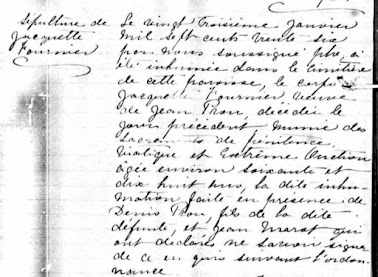 Sépulture de
Jacquette
Fournier
Le vingt troisième Janvier
Mil sept cents trente six
par nous soussigné ptre, a
été inhumée dans le Cimetière
de cette paroisse, le corps
Jacquette Fournier veuve
de Jean Pron, décédée le
jour précédent munie des
Sacrements de pénitence
Viatique et Extrême Onction
âgée environ soixante et
dix huit ans, la dite inhu-
mation faite en présence de
Denis Pron, fils de la dite
défunte, et Jean Marat qui
ont déclarés ne savoir signer
de ce en quis suivant l'ordon-
nance